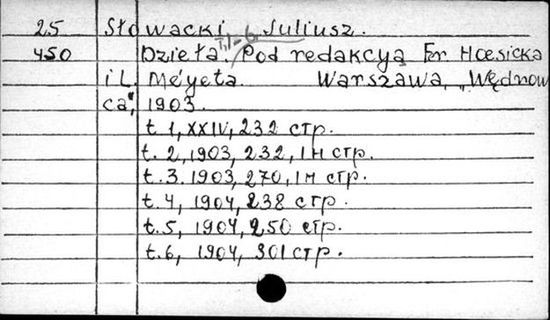 25 Słowacki Juliusz.
т. 1-6.
450 Dzieła. Pod redakcyą Fer. Hœsicka
i L. Méyeta. Warszawa, „Wędrow
ca", 1903.
t. 1, XXIV, 232 стр.
t. 2, 1903, 232, 1 н стр.
t. 3. 1903, 270, 1 н стр.
t. 4, 1904, 238 стр.
t. 5, 1904, 250 стр.
t. 6, 1904, 301 стр.